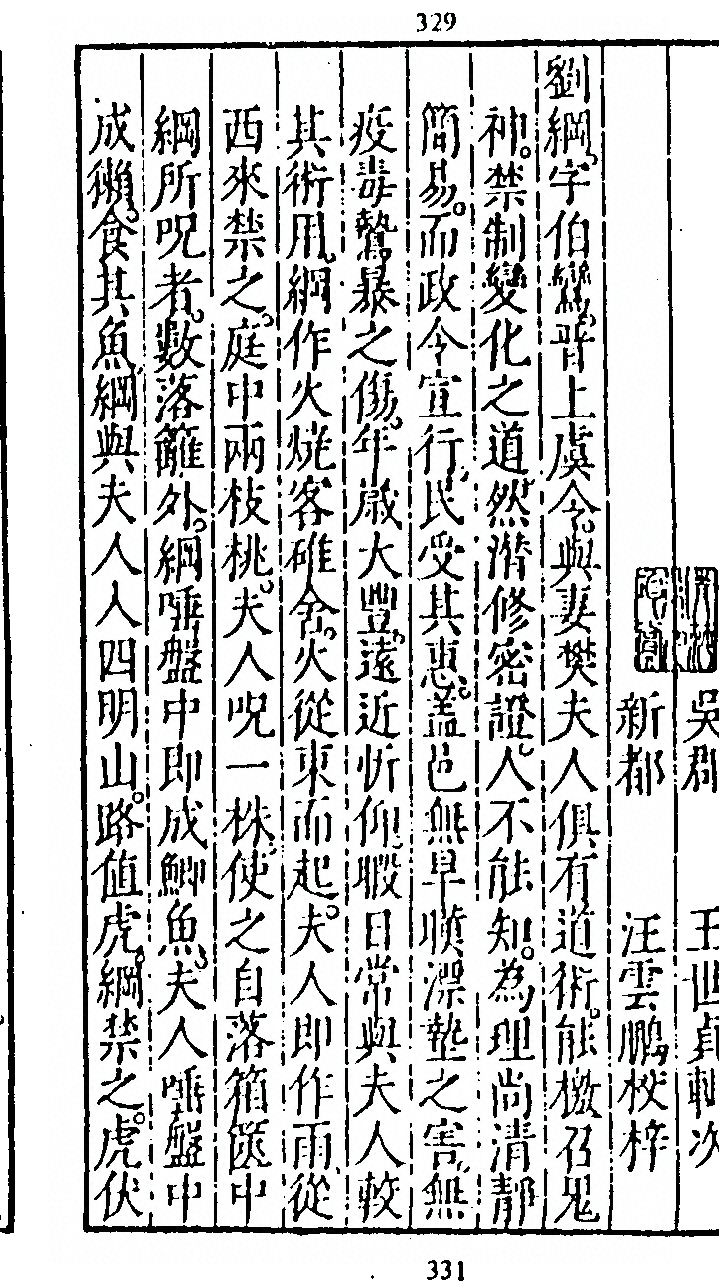 329
吳郡 王世貞輯次
新都 汪雲鵬校梓
劉綱字伯鸞晉上虞令與妻樊夫人俱有道術能檄召鬼
神禁制變化之道然潛修密證人不能知為理尚清靜
簡易而政令宣行民受其惠蓋邑無旱暵漂墊之害無
疫毒鷙暴之傷年歲大豐遠近忻仰暇日常與夫人較
其術用綱作火燒客碓舍火從東而起夫人即作雨從
西來禁之庭中兩枝桃夫人呪一株使之自落箱篋中
綱所呪者數落籬外綱唾盤中即成鯽魚夫人唾盤中
成獺食其魚綱與夫人入四明山路值虎綱禁之虎伏
331